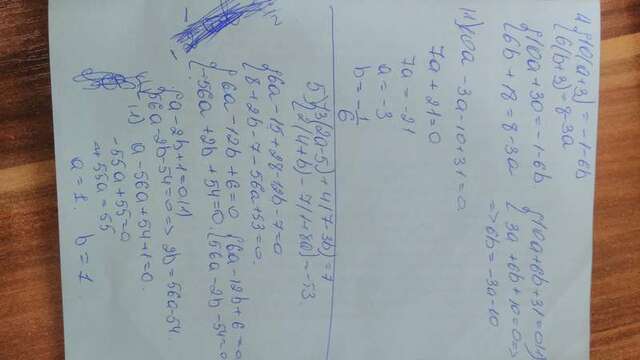 4) {10(a+3) = -1-6b
{6(b+3)=8-3a
{10a+30=-1-6b {10a+6b+31=0 (1)
{6b+18=8-3a {3a+6b+10=0=>
=>6b=-3a-10
(1) 10a-3a-10+31=0
7a+21=0
7a=-21
a=-3
b=-1/6
5) {3(2a-5)+4(7-3b)=7
{2(4+b)-7(1+8a)=-53.
{6a-15+28-12b-7=0
{8+2b-7-56a+53=0.
{6a-12b+6=0 {6a-12b+6=0
{-56a+2b+54=0. {56a-2b-54=0
{a-2b+1=0 (1)
{56a-2b-54=0=>2b=56a-54.
(1) a-56a+54+1=0.
-55a+55=0
+55a=55
a=1. b=1